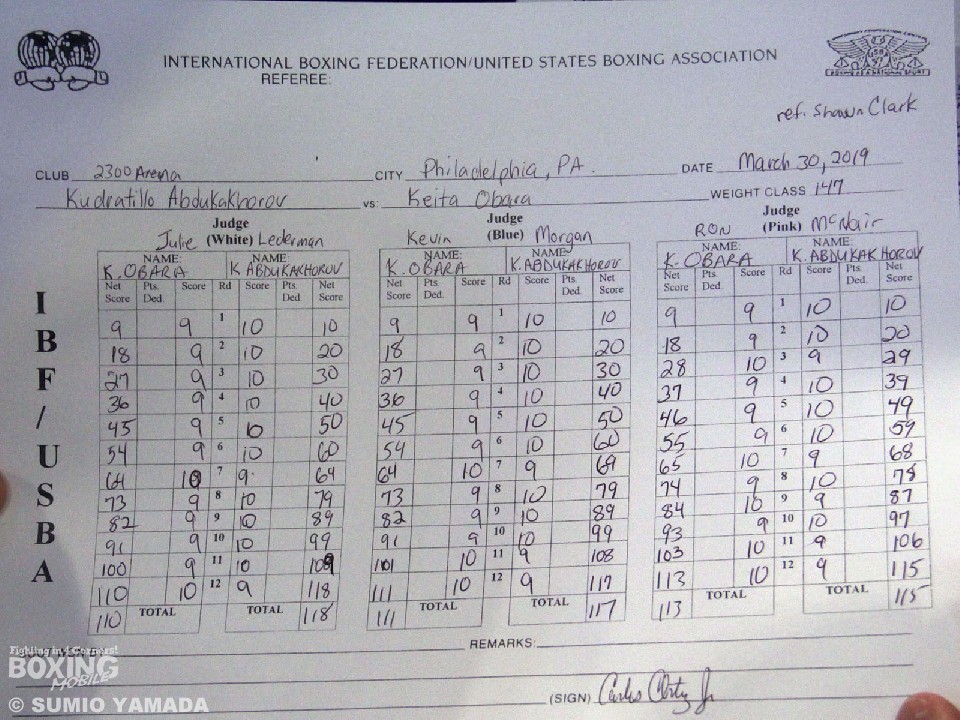 INTERNATIONAL BOXING FEDERATION/UNITED STATES BOXING ASSOCIATION
REFEREE:
ref. Shawn Clark
CLUB 2300 Arena CITY Philadelphia, PA. DATE March 30, 2019
Kudratillo Abdukakhorov vs: Keita Obara WEIGHT CLASS 147
Judge Judge Judge
Julie (White) Lederman Kevin (Blue) Morgan RON (Pink) McNair
NAME: NAME: NAME: NAME: NAME: NAME:
K. OBARA K ABDUKAKHOROV K. OBARA K. ABDUKAKHOROV K. OBARA K. ABDUKAKHOROV
Net Score Pts. Ded. Score Rd Score Pts. Ded Net Score Net Score Pts. Ded. Score Rd Score Pts. Ded. Net Score Net Score Pts. Ded. Score Rd Score Pts. Ded. Net Score
9 9 1 10 10 9 9 1 10 10 9 9 1 10 10
18 9 2 10 20 18 9 2 10 20 18 9 2 10 20
27 9 3 10 30 27 9 3 10 30 28 10 3 9 29
36 9 4 10 40 36 9 4 10 40 37 9 4 10 39
45 9 5 10 50 45 9 5 10 50 46 9 5 10 49
54 9 6 10 60 54 9 6 10 60 55 9 6 10 59
64 10 7 9 69 64 10 7 9 69 65 10 7 9 68
73 9 8 10 79 73 9 8 10 79 74 9 8 10 78
82 9 9 10 89 82 9 9 10 89 84 10 9 9 87
91 9 10 10 99 91 9 10 10 99 93 9 10 10 97
100 9 11 10 109 101 10 11 9 108 103 10 11 9 106
110 10 12 9 118 111 10 12 9 117 113 10 12 9 115
110 TOTAL TOTAL 118 111 TOTAL TOTAL 117 113 TOTAL TOTAL 115
IBF/USBA
REMARKS:
(SIGN) Carlos Ortiz Jr
Fighting in 4 Corners!
BOXING
MOBILE
© SUMIO YAMADA